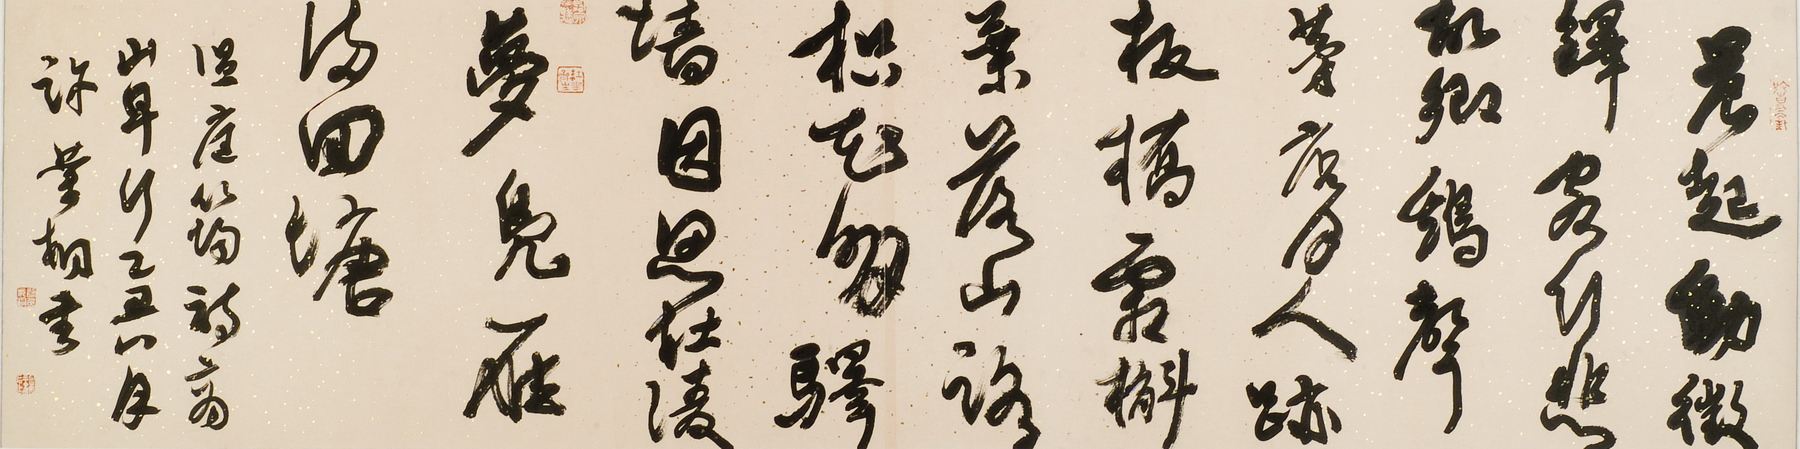 晨起動徵
鐸客行悲
故鄉鷄聲
茅店月人跡
板橋霜槲
葉落山路
枳花明驛
墻因思杜陵
夢鳧雁
滿回塘
溫庭筠詩商
山早行乙丑八月
許書